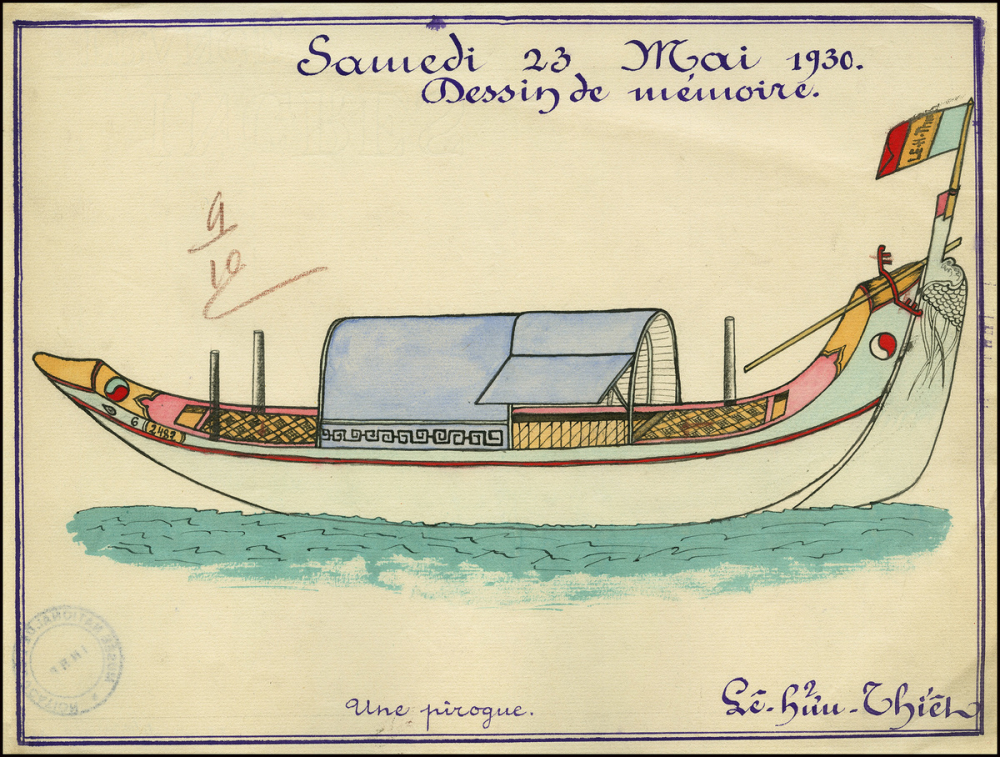 Samedi 23 Mai 1930.
Dessin de mémoire.
9
10
6
2.482
Une pirogue.
Lê-hữu-Thiết